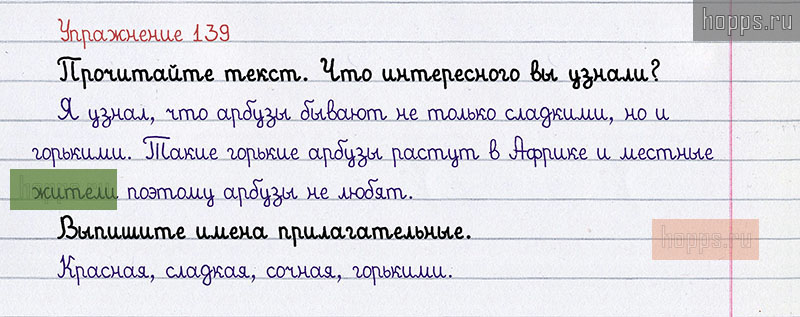 hopps.ru
Упражнение 139
Прочитайте текст. Что интересного вы узнали?
Я узнал, что арбузы бывают не только сладкими, но и
горькими. Такие горькие арбузы растут в Африке и местные
жители поэтому арбузы не любят.
Выпишите имена прилагательные.
hopps.ru
Красная, сладкая, сочная, горькими.